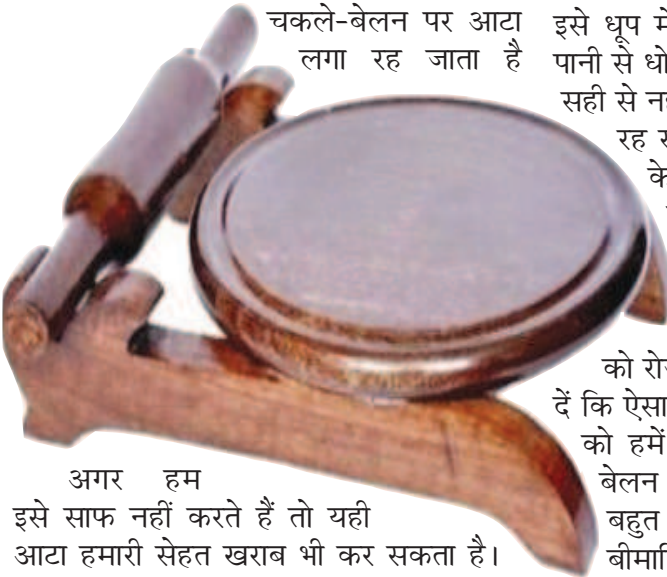 चकले-बेलन पर आटा
लगा रह जाता है
अगर हम
इसे साफ नहीं करते हैं तो यही
आटा हमारी सेहत खराब भी कर सकता है।
इसे धूप में
पानी से धो
सही से
रह
के
को
दें कि ऐसा
को हमें
बेलन
बहुत